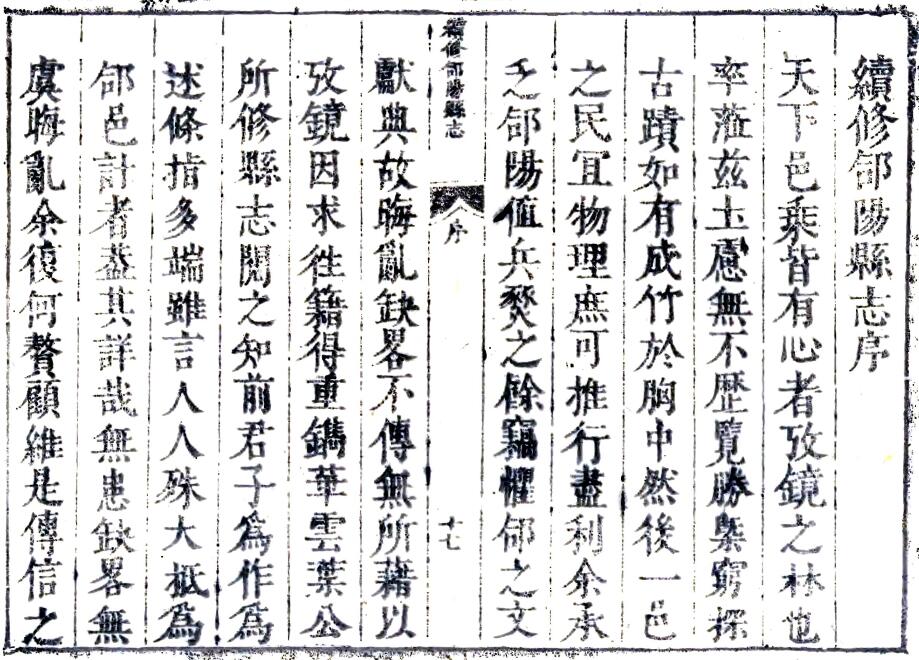 續修郃陽縣志序
天下邑乘皆有心者攷鏡之林也
率蒞茲土慮無不歷覽勝槩窮探
古蹟如有成竹於胸中然後一邑
之民冝物理庶可推行盡利余承
乏郃陽值兵燹之餘竊懼郃之文
續修郃陽縣志
序
十七
獻典故晦亂缺畧不傳無所藉以
攷鏡因求徃籍得重鐫華雲葉公
所修縣志閱之知前君子爲作爲
述條指多端雖言人人殊大抵爲
郃邑計者葢其詳哉無患缺畧無
虞晦亂余復何贅顧維是傳信之